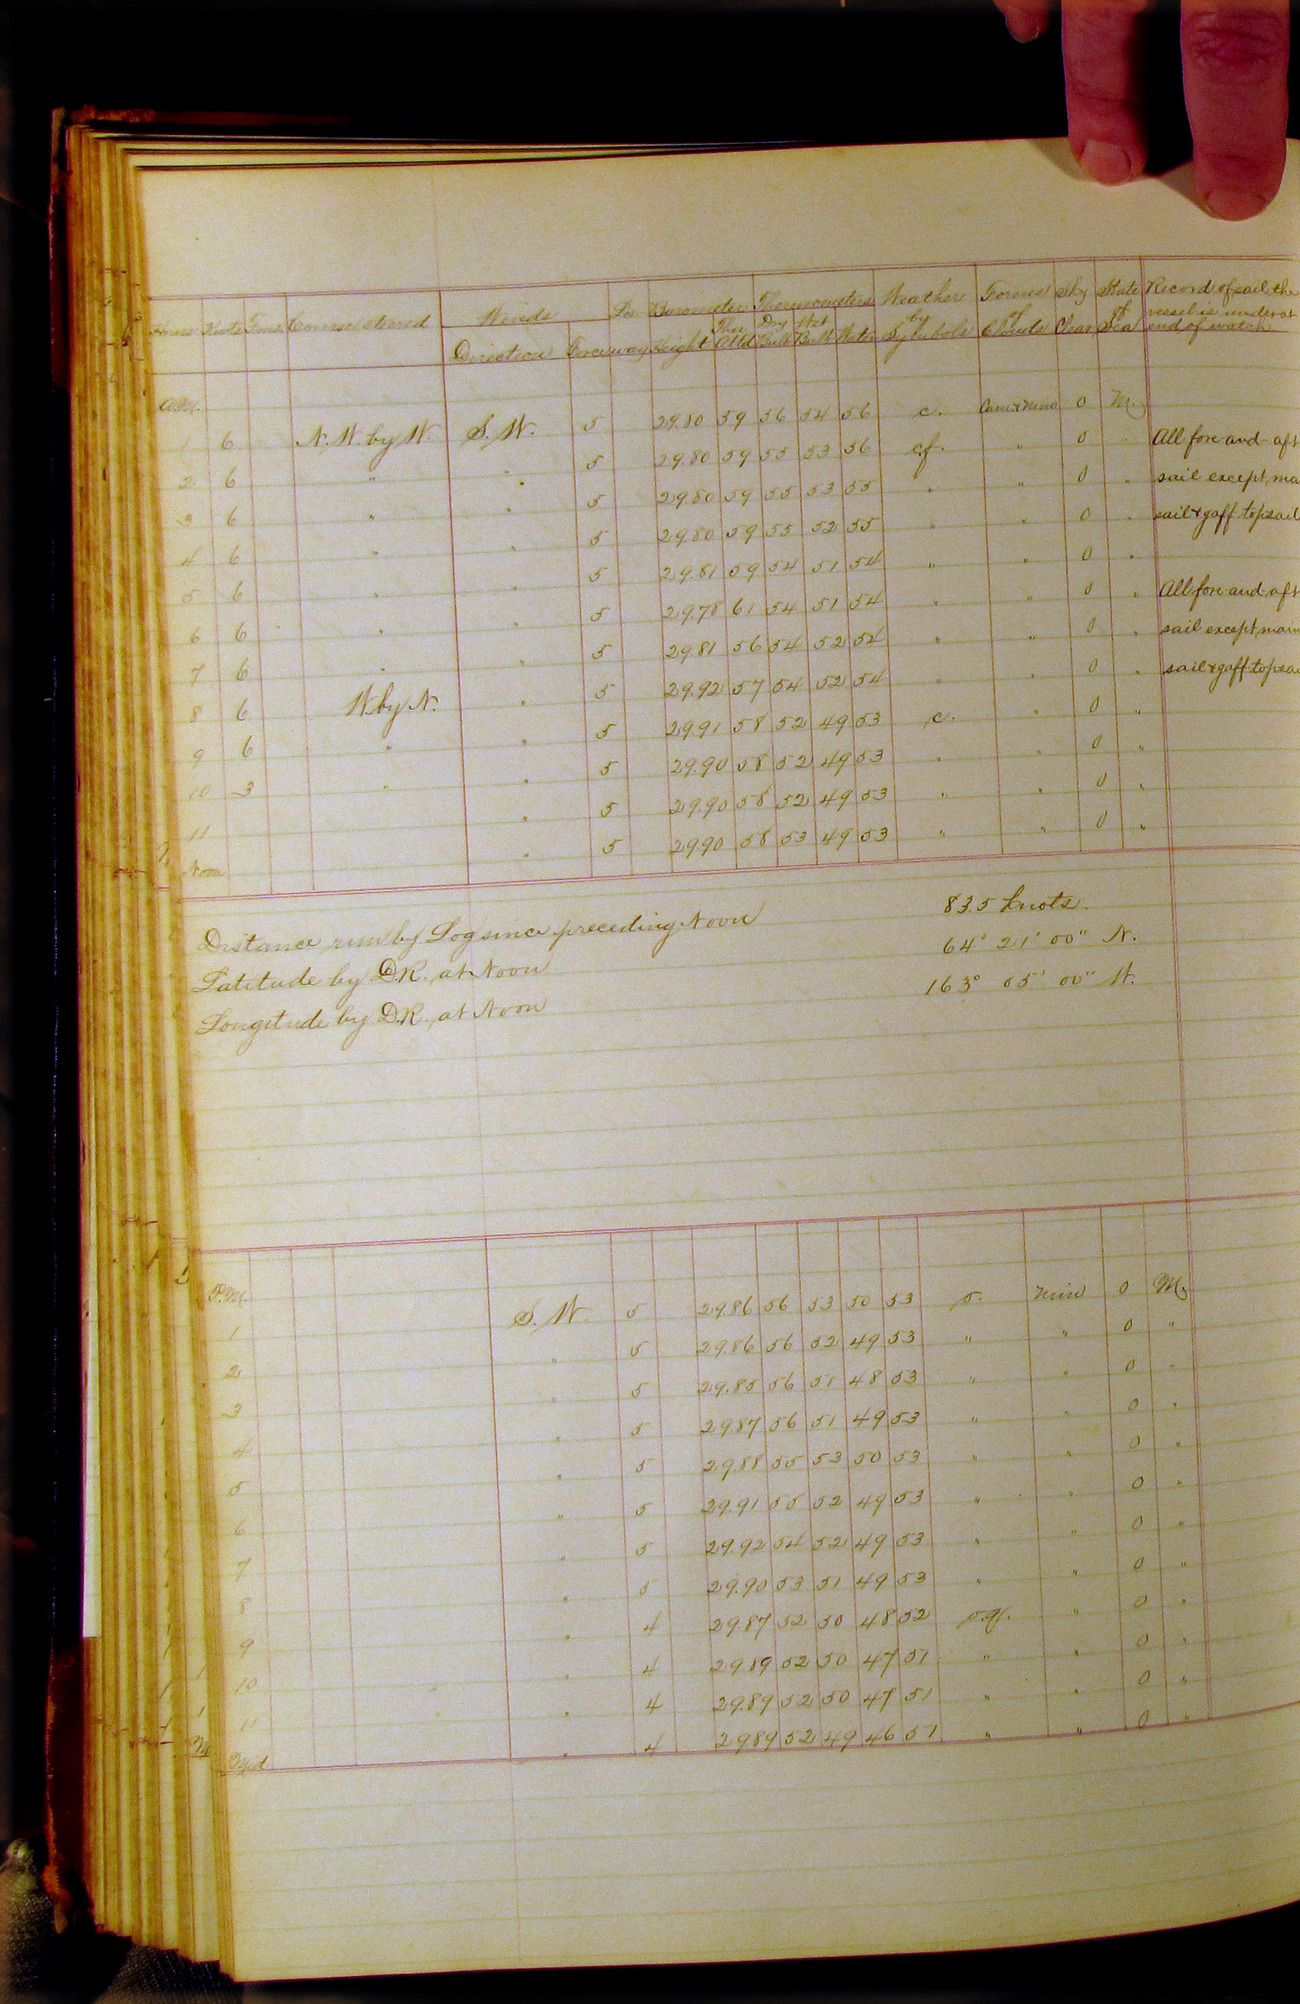 Hours Knots Tens Course steered Winds Lee Barometer Thermometers Weather Forms Sky State Record of sail the
Direction Force way Height Ther Attd Dry Bulb Wet Bulb Water by Symbols of Clouds Clear of Sea vessel is under at
end of watch
A.M.
1 6 N.W. by W. S.W. 5 29.80 59 56 54 56 c. Cum & Nim 0 M.
2 6 " " 5 29.80 59 55 53 56 cf. " 0 All fore and aft
3 6 " " 5 29.80 59 55 53 55 " " 0 " sail except, ma
4 6 " " 5 29.80 59 55 52 55 " " 0 " sail & gaff topsail
5 6 " " 5 29.81 59 54 51 54 " " 0 "
6 6 " " 5 29.78 61 54 51 54 " " 0 " All fore and aft
7 6 " " 5 29.81 56 54 52 54 " " 0 " sail except, main
8 6 W. by N. " 5 29.92 57 54 52 54 " " 0 " sail & gaff topsa
9 6 " " 5 29.91 58 52 49 53 c. " 0 "
10 3 " " 5 29.90 58 52 49 53 " " 0 "
11 " 5 29.90 58 52 49 53 " " 0 "
Noon " 5 29.90 58 53 49 53 " " 0 "
Distance run by Log since preceding Noon 83.5 knots.
Latitude by D.R. at Noon 64° 21' 00" N.
Longitude by D.R. at Noon 163° 05' 00" W.
P.M.
1 S.W. 5 29.86 56 53 50 53 o. Nim 0 M.
2 " 5 29.86 56 52 49 53 " " 0 "
3 " 5 29.85 56 51 48 53 " " 0 "
4 " 5 29.87 56 51 49 53 " " 0 "
5 " 5 29.88 55 53 50 53 " " 0 "
6 " 5 29.91 55 52 49 53 " " 0 "
7 " 5 29.92 54 52 49 53 " " 0 "
8 " 5 29.90 53 51 49 53 " " 0 "
9 " 4 29.87 52 50 48 52 o.q. " 0 "
10 " 4 29.89 52 50 47 51 " " 0 "
11 " 4 29.89 52 50 47 51 " " 0 "
Mid " 4 29.89 52 49 46 51 " " 0 "